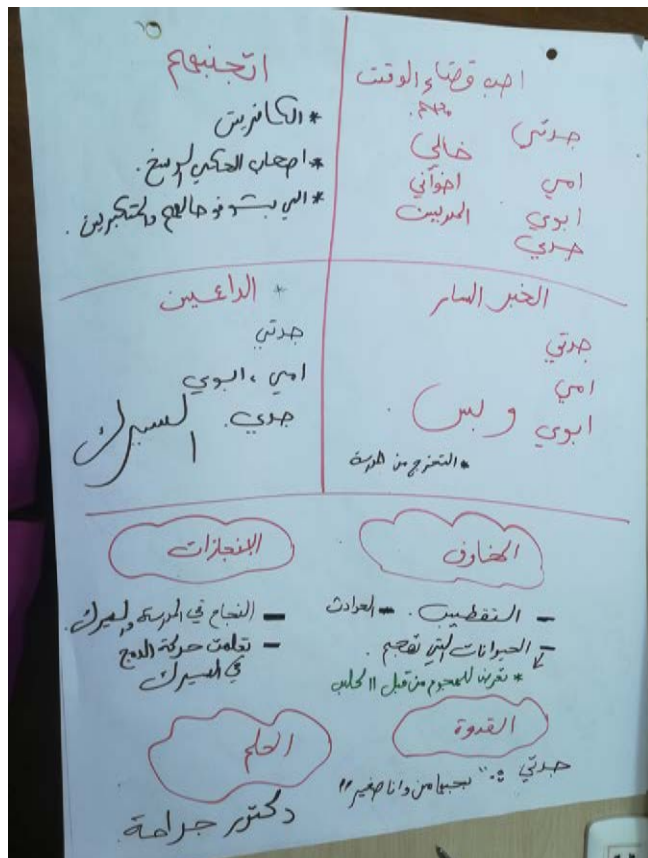 احب قضاء الوقت
معهم
جدتي
خالي
امي
اخواني
ابوي
المدربين
جدي
اتجنبهم
* الكافريش
* اصحاب الحكي الوسخ.
* الي بشوفو حالهم والمتكبرين.
الخبر السار
جدتي
امي
ابوي
وبس
* التخرج من المدرسة
* الداعمين
جدتي
امي، ابوي
جدي.
السيرك
المخاوف
- التقطيب. - الحوادث
- الحيوانات التي تهجم.
* تعرضنا للهجوم من قبل الكلب
الإنجازات
- النجاح في المدرسة والسيرك.
- تعلمت حركة الدمج
في السيرك
القدوة
جدتي :. "بحبها من وانا صغير"
الحلم
دكتور جراحة